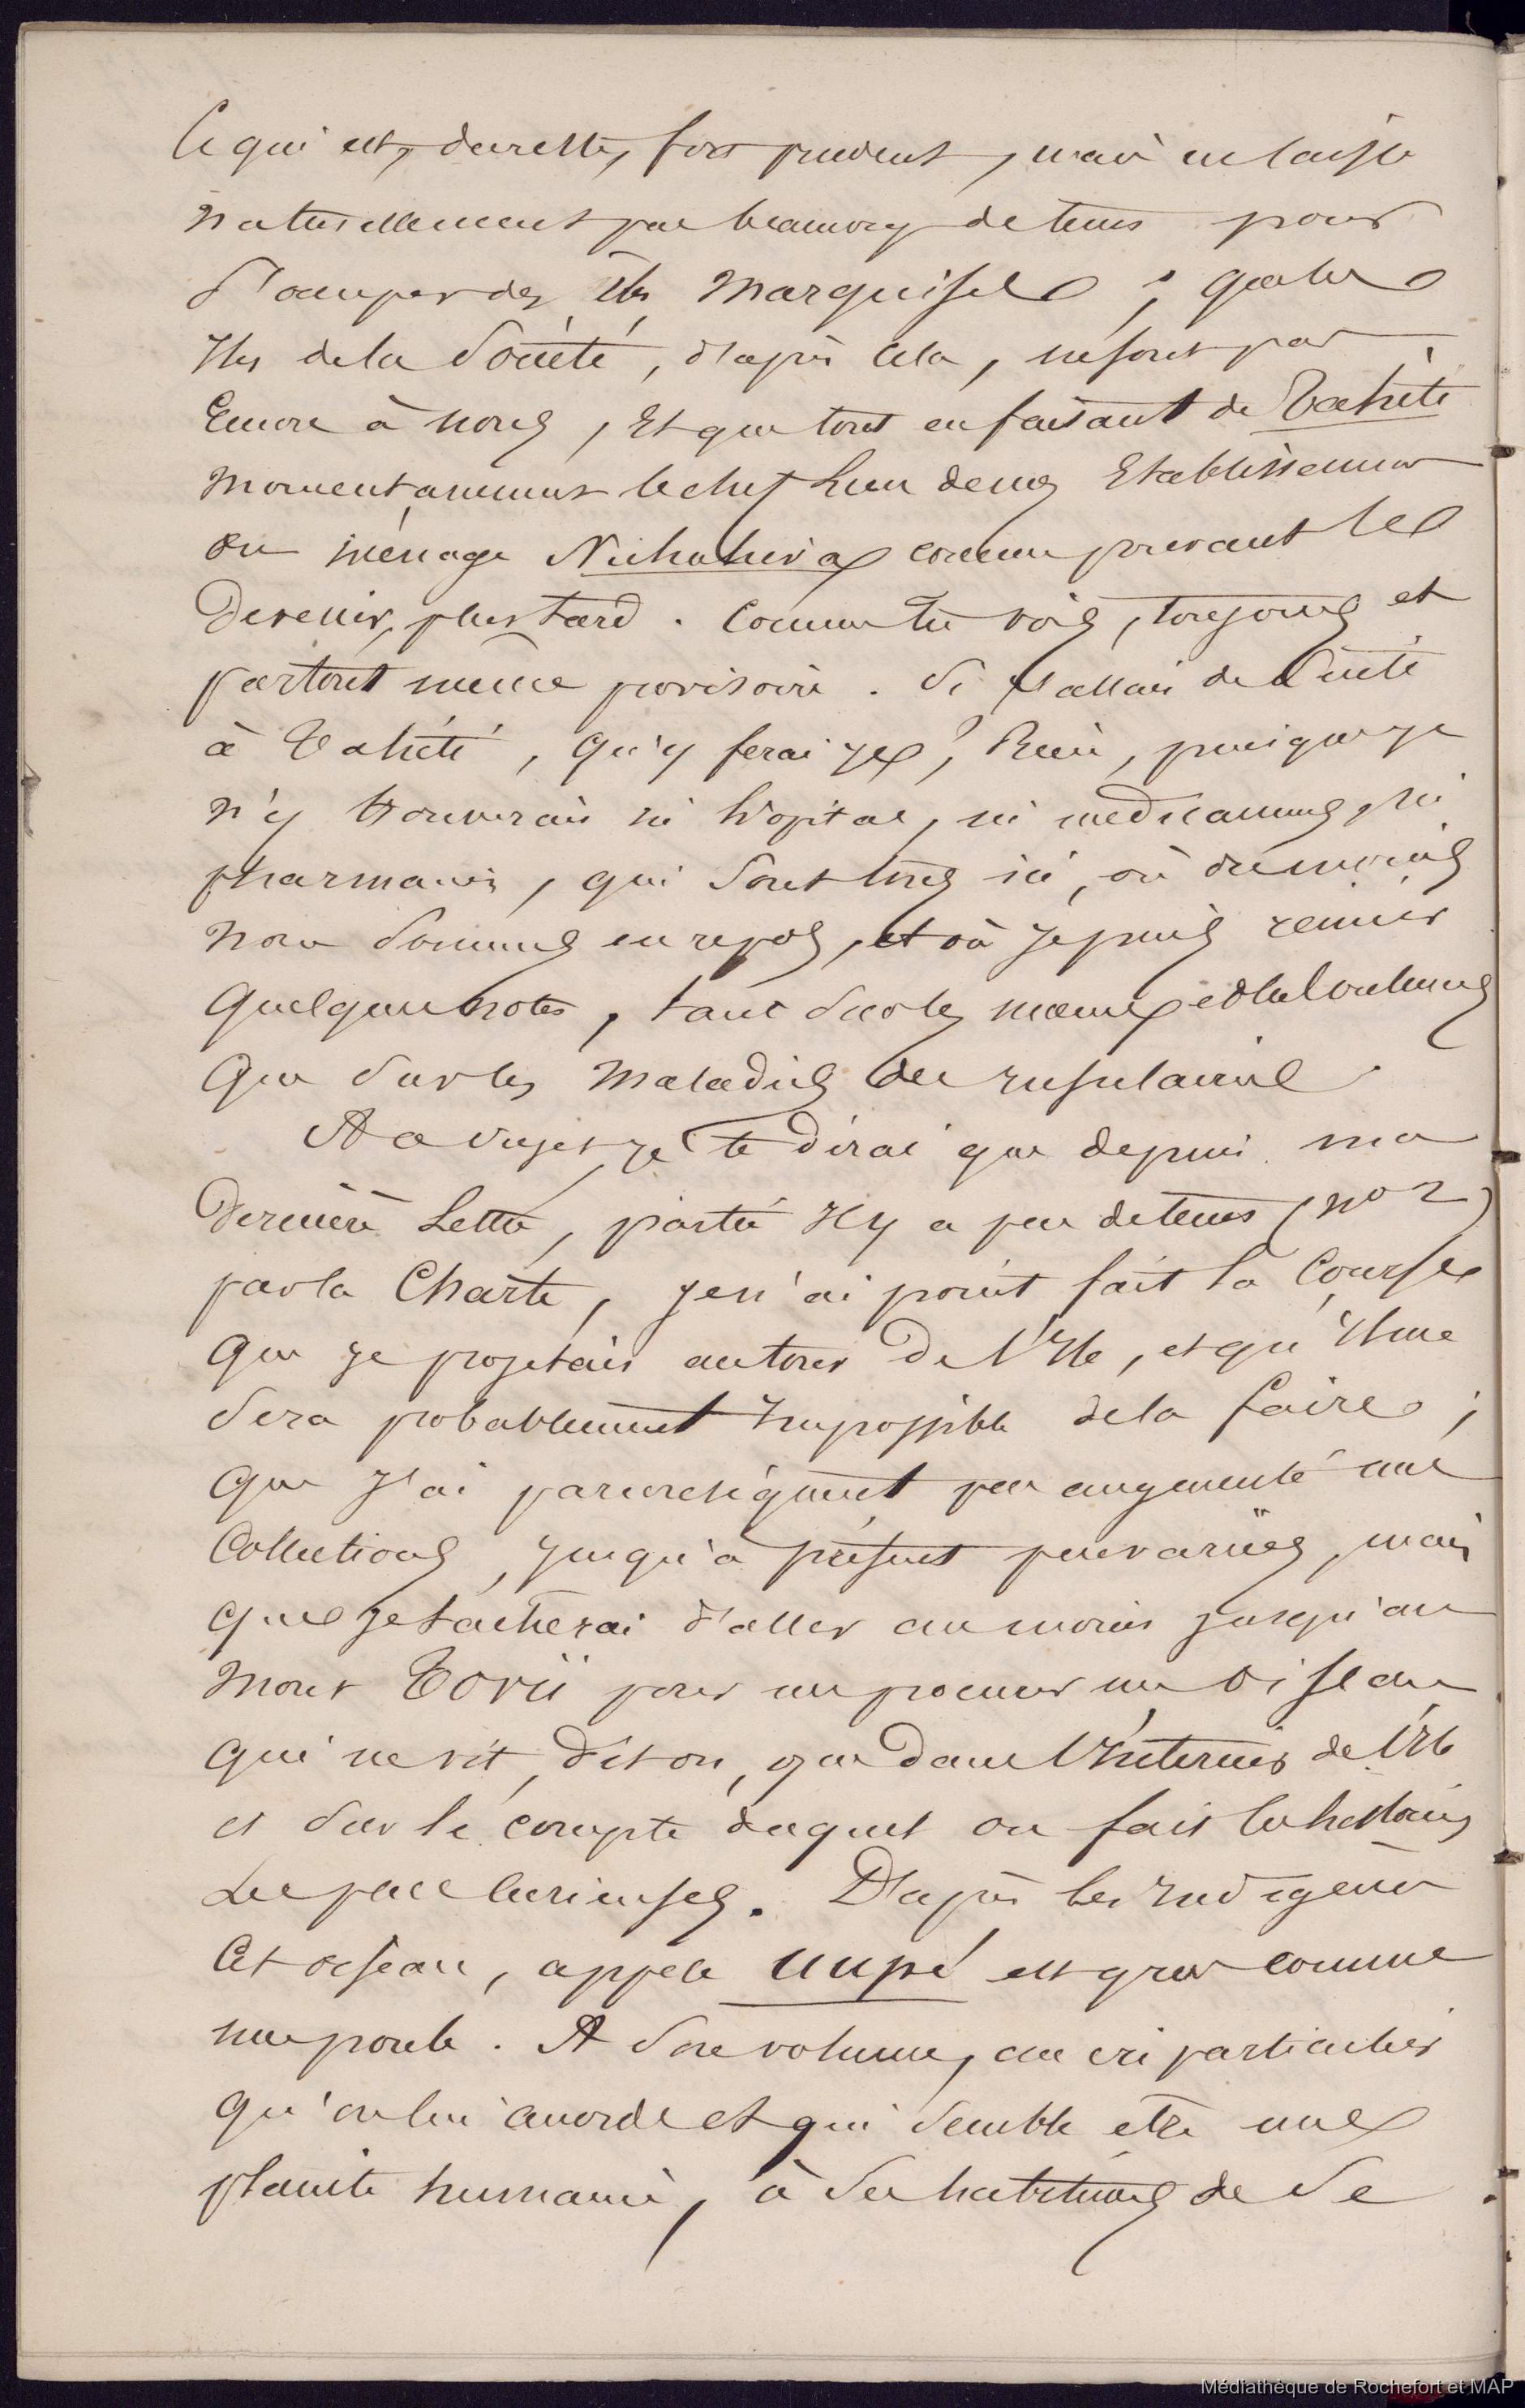 Ce qui est, du reste, fort prudent, mais ne laisse
naturellement pas beaucoup de tems pour
s'occuper des îles Marquises ; que les
Iles de la Société, d'après cela, ne sont pas
Encore à nous, Et que tout en faisant de Tahiti
momentanément le chef lieu de nos Etablissemens
on ménage Nukuhiva comme pouvant le
Devenir, plus tard. Comme tu vois, toujours et
partout même provisoire. Si j'allais de suite
à Tahiti, qu'y ferai je ? Rien, puisque je
n'y trouverais ni hôpital, ni médicamens, ni
pharmacie, qui sont tous ici, où du moins
nous sommes en repos, et où je puis réunir
quelques notes, tant sur les mœurs et les coutumes
que sur les maladies des insulaires.
A ce sujet je te dirai que depuis ma
dernière Lettre, partie il y a peu de tems (no 2)
par la Charte, je n'ai point fait la Course
que je projetais autour de l'Ile, et qu'il me
sera probablement impossible de la faire ;
que j'ai par conséquent peu augmenté mes
Collections, jusqu'à présent peu variées, mais
que je tâcherai d'aller au moins jusqu'au
Mont Tovii pour me procurer un oiseau
qui ne vit, dit on, que dans l'intérieur de l'Ile
et sur le compte duquel on fait les histoires
Les plus curieuses. D'après les Indigènes
Cet oiseau, appelé Uupé est gros comme
une poule. A son volume, au cri particulier
qu'on lui accorde et qui semble être une
plainte humaine, à ses habitudes de se
Médiathèque de Rochefort et MAP